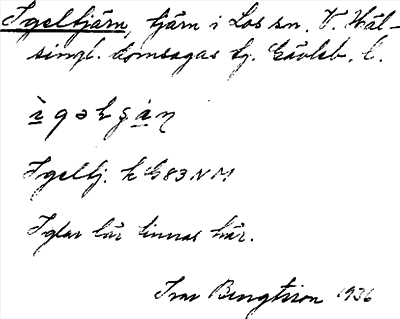 Igeltjärn, tjärn i Los sn. V. Häl-
singl. domsagas tg. Gävleb. l.
Igeltj. k G83 NM
Iglar lär finnas här.
Ivar Bengtsson 1936